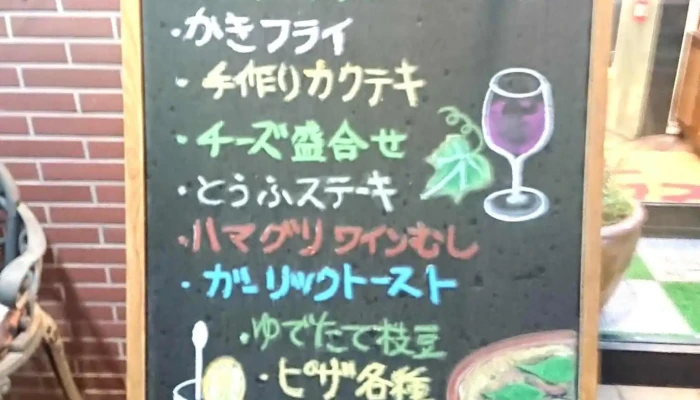 ・かきフライ
・手作りカクテキ
・チーズ盛合せ
・とうふステーキ
・ハマグリワインむし
・ガーリックトースト
・ゆでたて枝豆
・ピザ各種